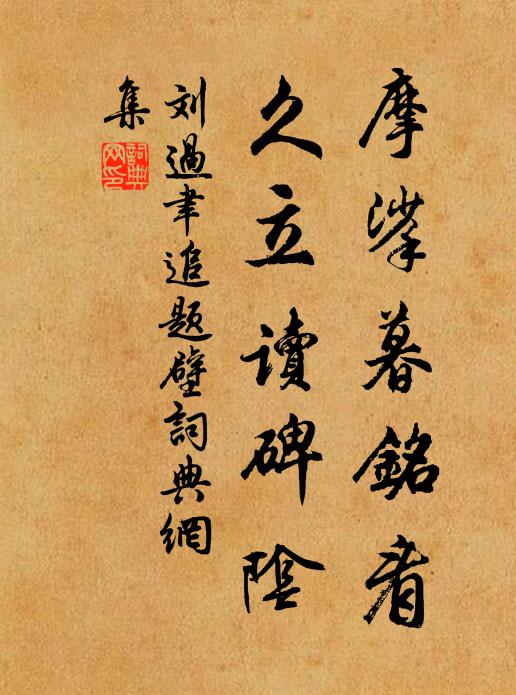 摩挲暮銘看
久立讀碑陰
刘過聿追題壁詞典網
集
詞典
网印